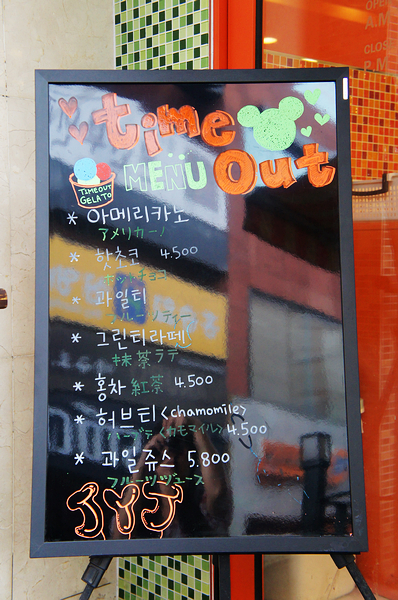 OPEN
A.M
CLOSE
P.M
time
MENU Out
TIMEOUT
GELATO
* 아메리카노
アメリカーノ
* 핫초코 4.500
ホットチョコ
* 과일티
フルーツティー
* 그린티라떼
抹茶ラテ
* 홍차 紅茶 4.500
* 허브티 <chamomile>
ハーブテ <カモマイル> 4,500
* 과일쥬스 5.800
フルーツジュース
JYJ